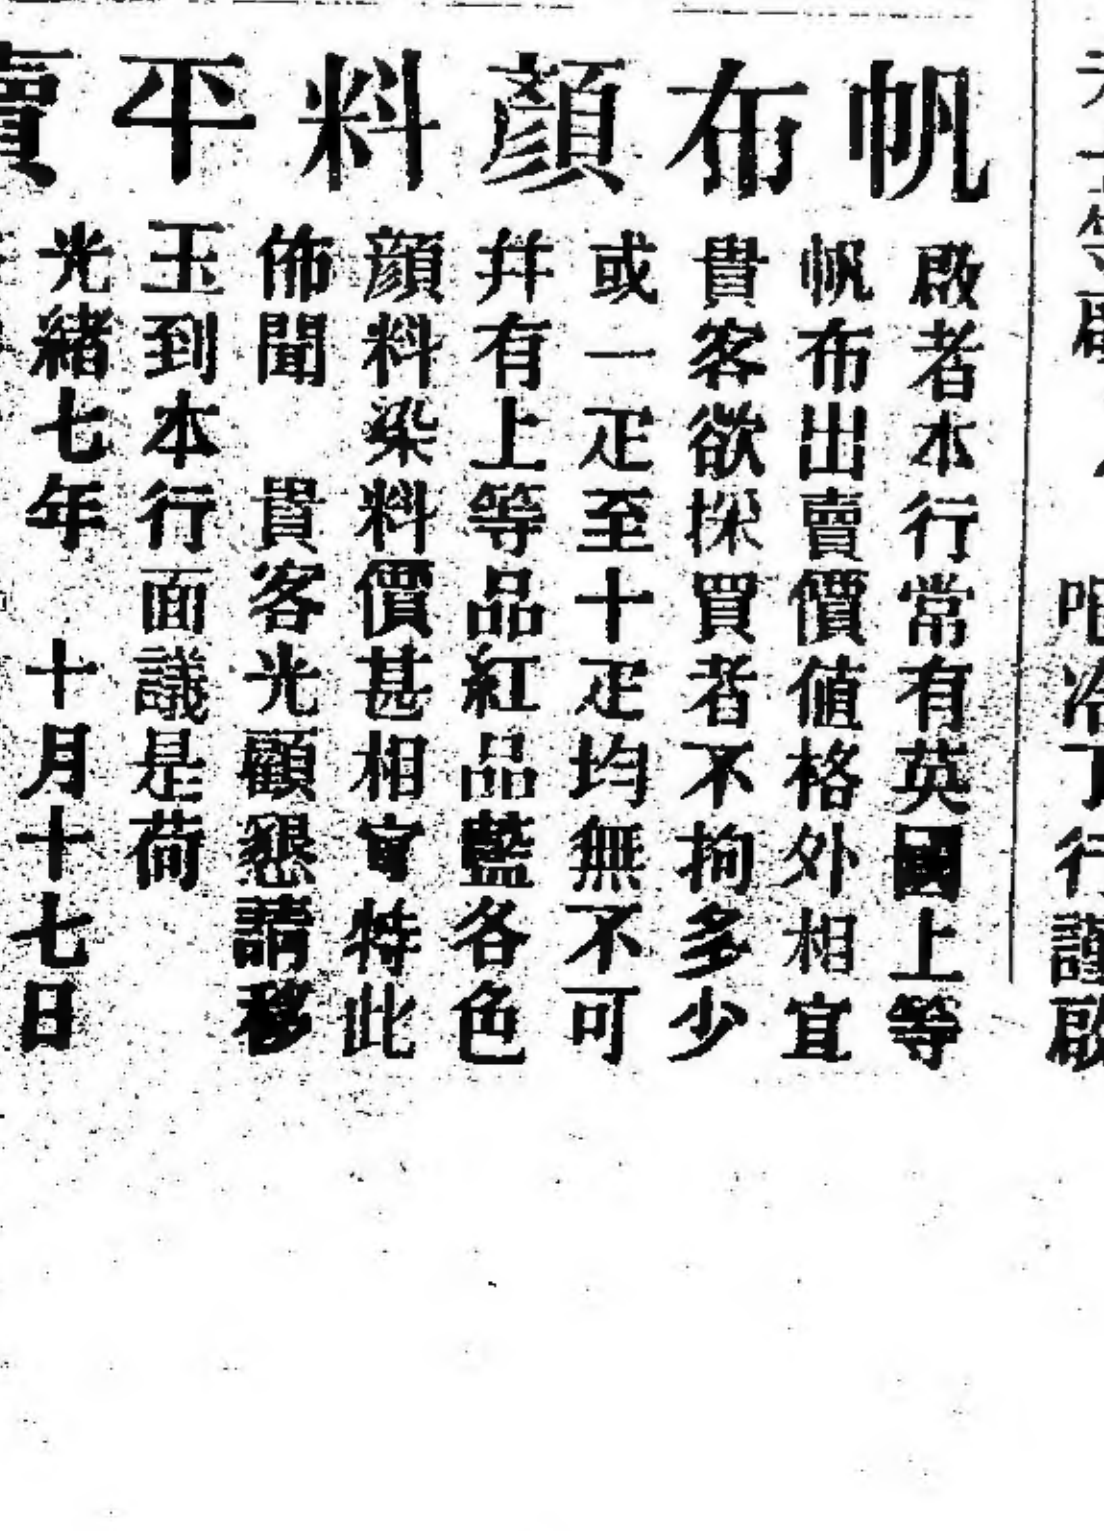 帆布顏料平賣
啟者本行常有英國上等
帆布出賣價值格外相宜
貴客欲採買者不拘多少
或一疋至十疋均無不可
并有上等品紅品藍各色
顏料染料價甚相宜特此
佈聞　貴客光顧懇請移
玉到本行面議是荷
光緒七年　十月十七日